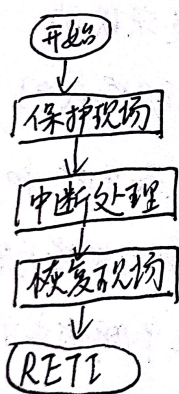 开始
保护现场
中断处理
恢复现场
RETI